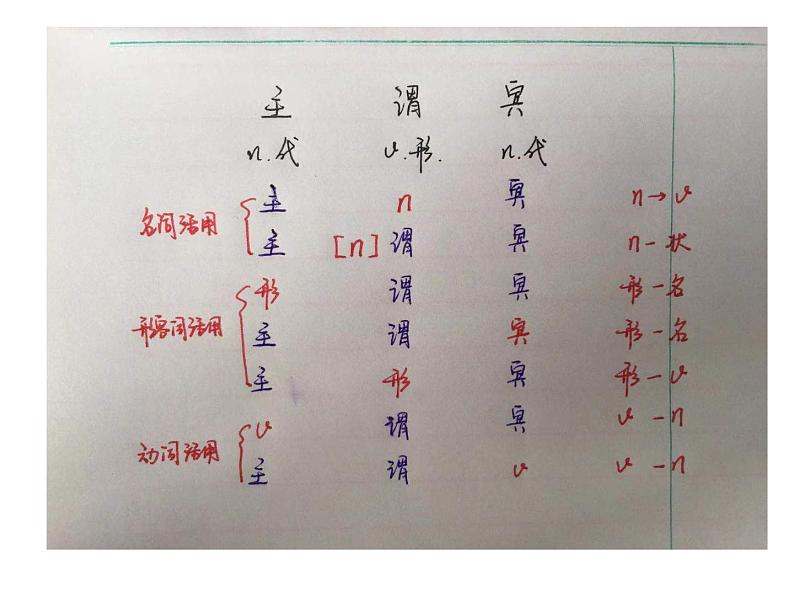 主 谓 宾
n.代 v.形. n.代
名词活用 主 n 宾 n→v
主 [n] 谓 宾 n-状
形 谓 宾 形-名
形容词活用 主 谓 宾 形-名
主 形 宾 形-v
v 谓 宾 v-n
动词活用 主 谓 v v-n